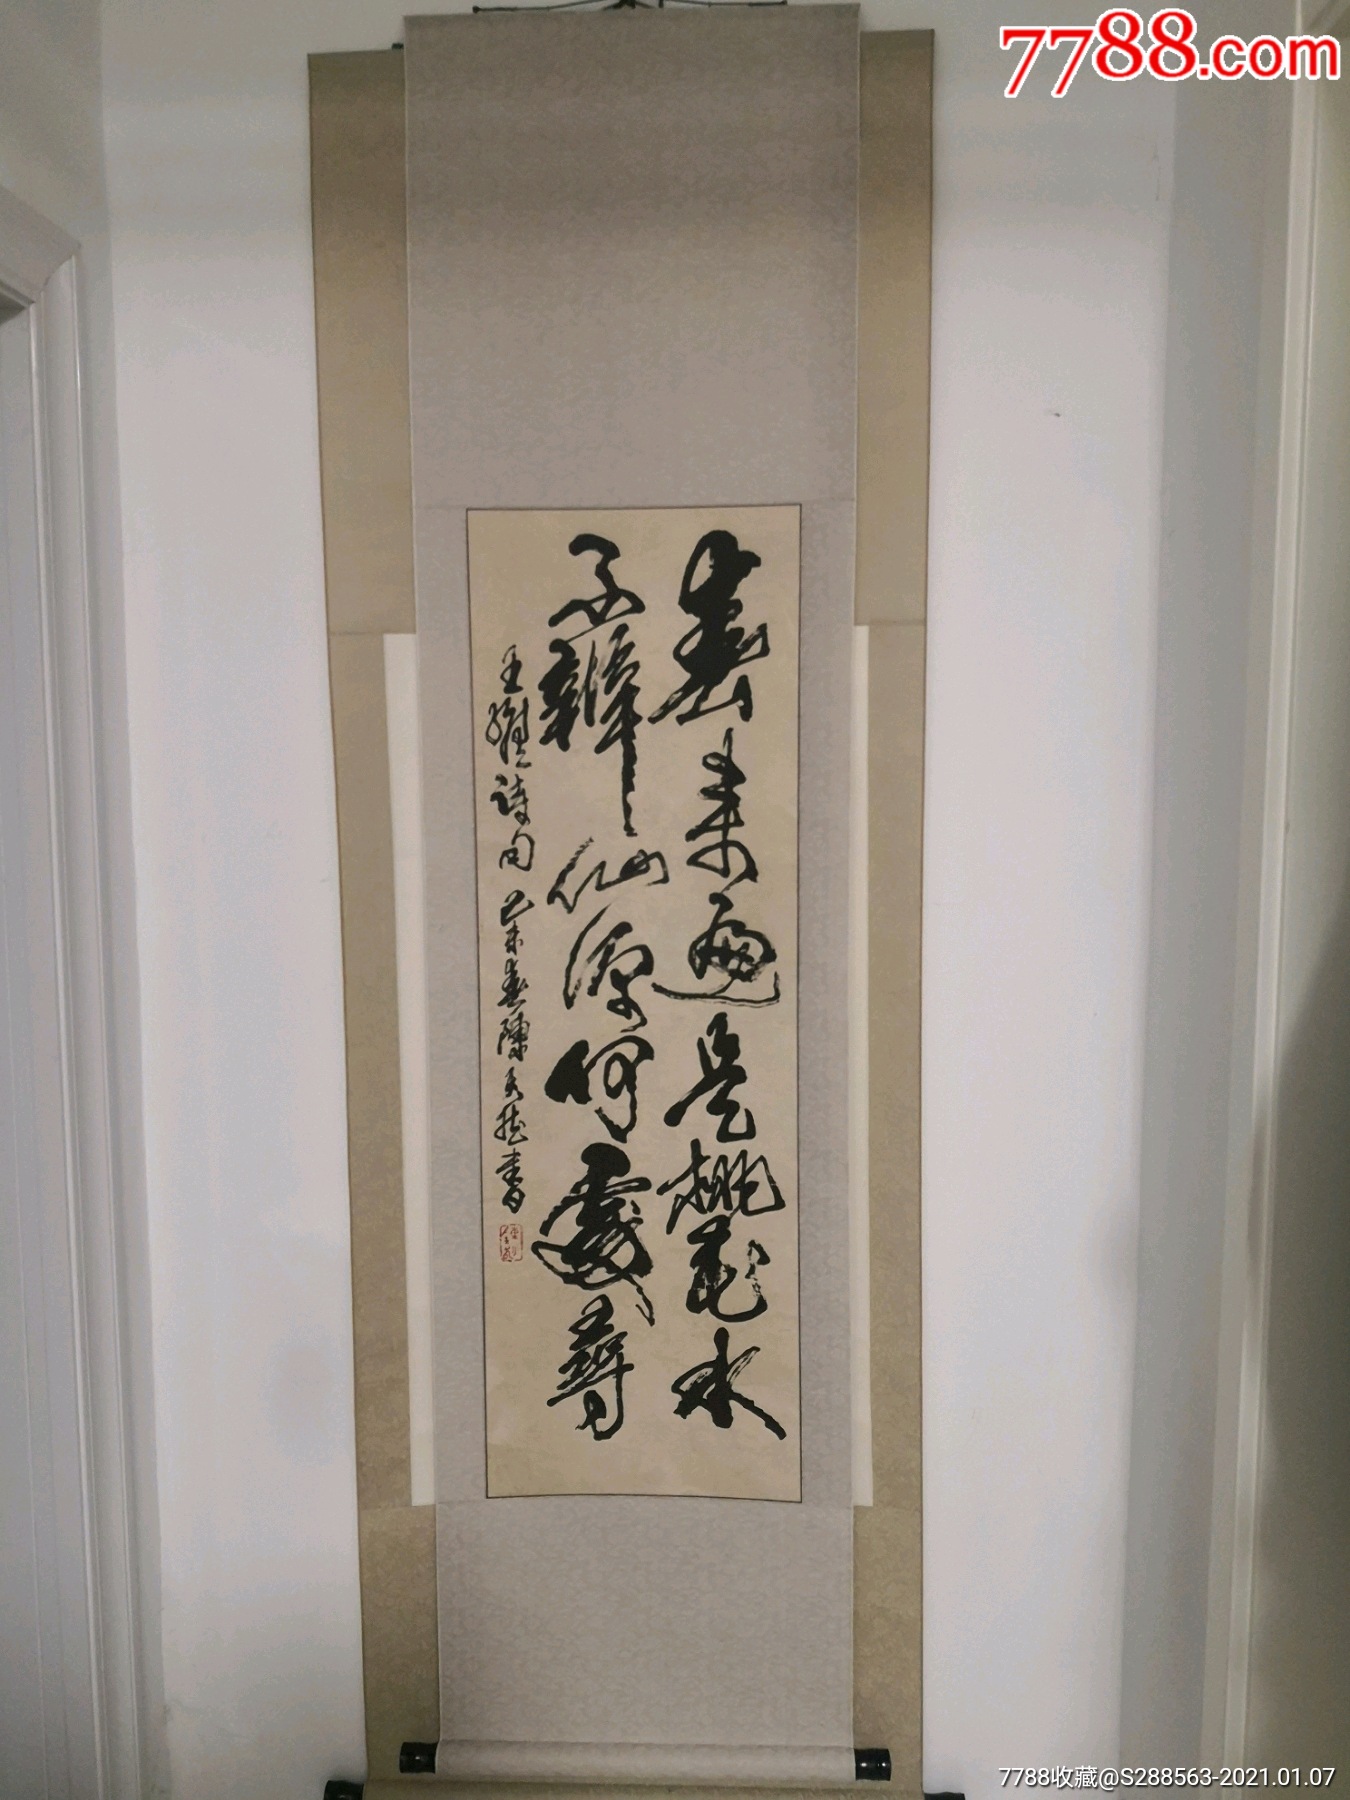 7788.com
春来遍是桃花水
不辨仙源何處尋
王維詩句 癸未春陳天然書
7788收藏@S288563-2021.01.07